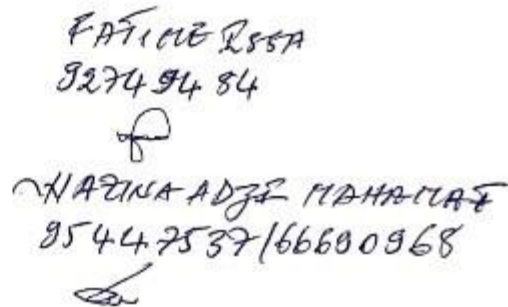 FATIME ISSA
92749484
HAZINA ADZI MAHAMAT
95447537/66690968